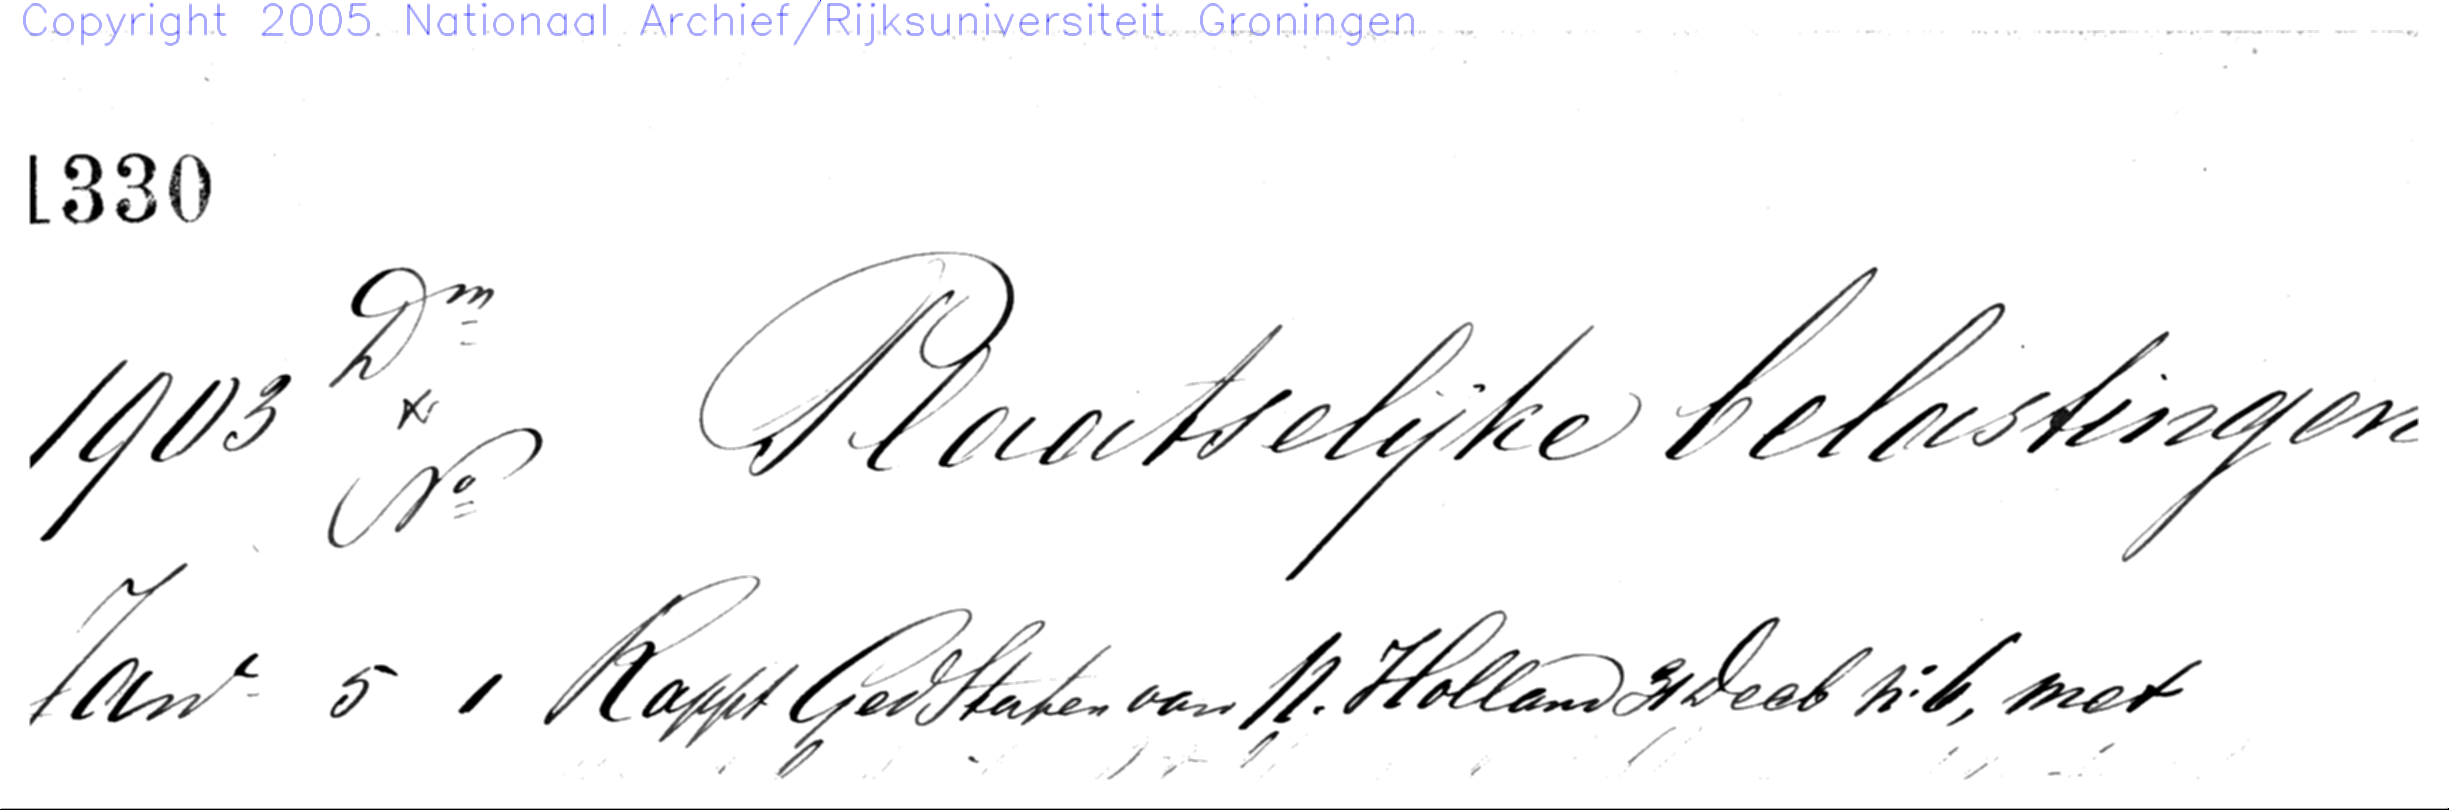 Copyright 2005 Nationaal Archief/Rijksuniversiteit Groningen
L330
1903 Dm & No Plaatselijke belastingen
Janr 5 1 Rappt Ged Staten van N. Holland 31 Decb n: 6, met